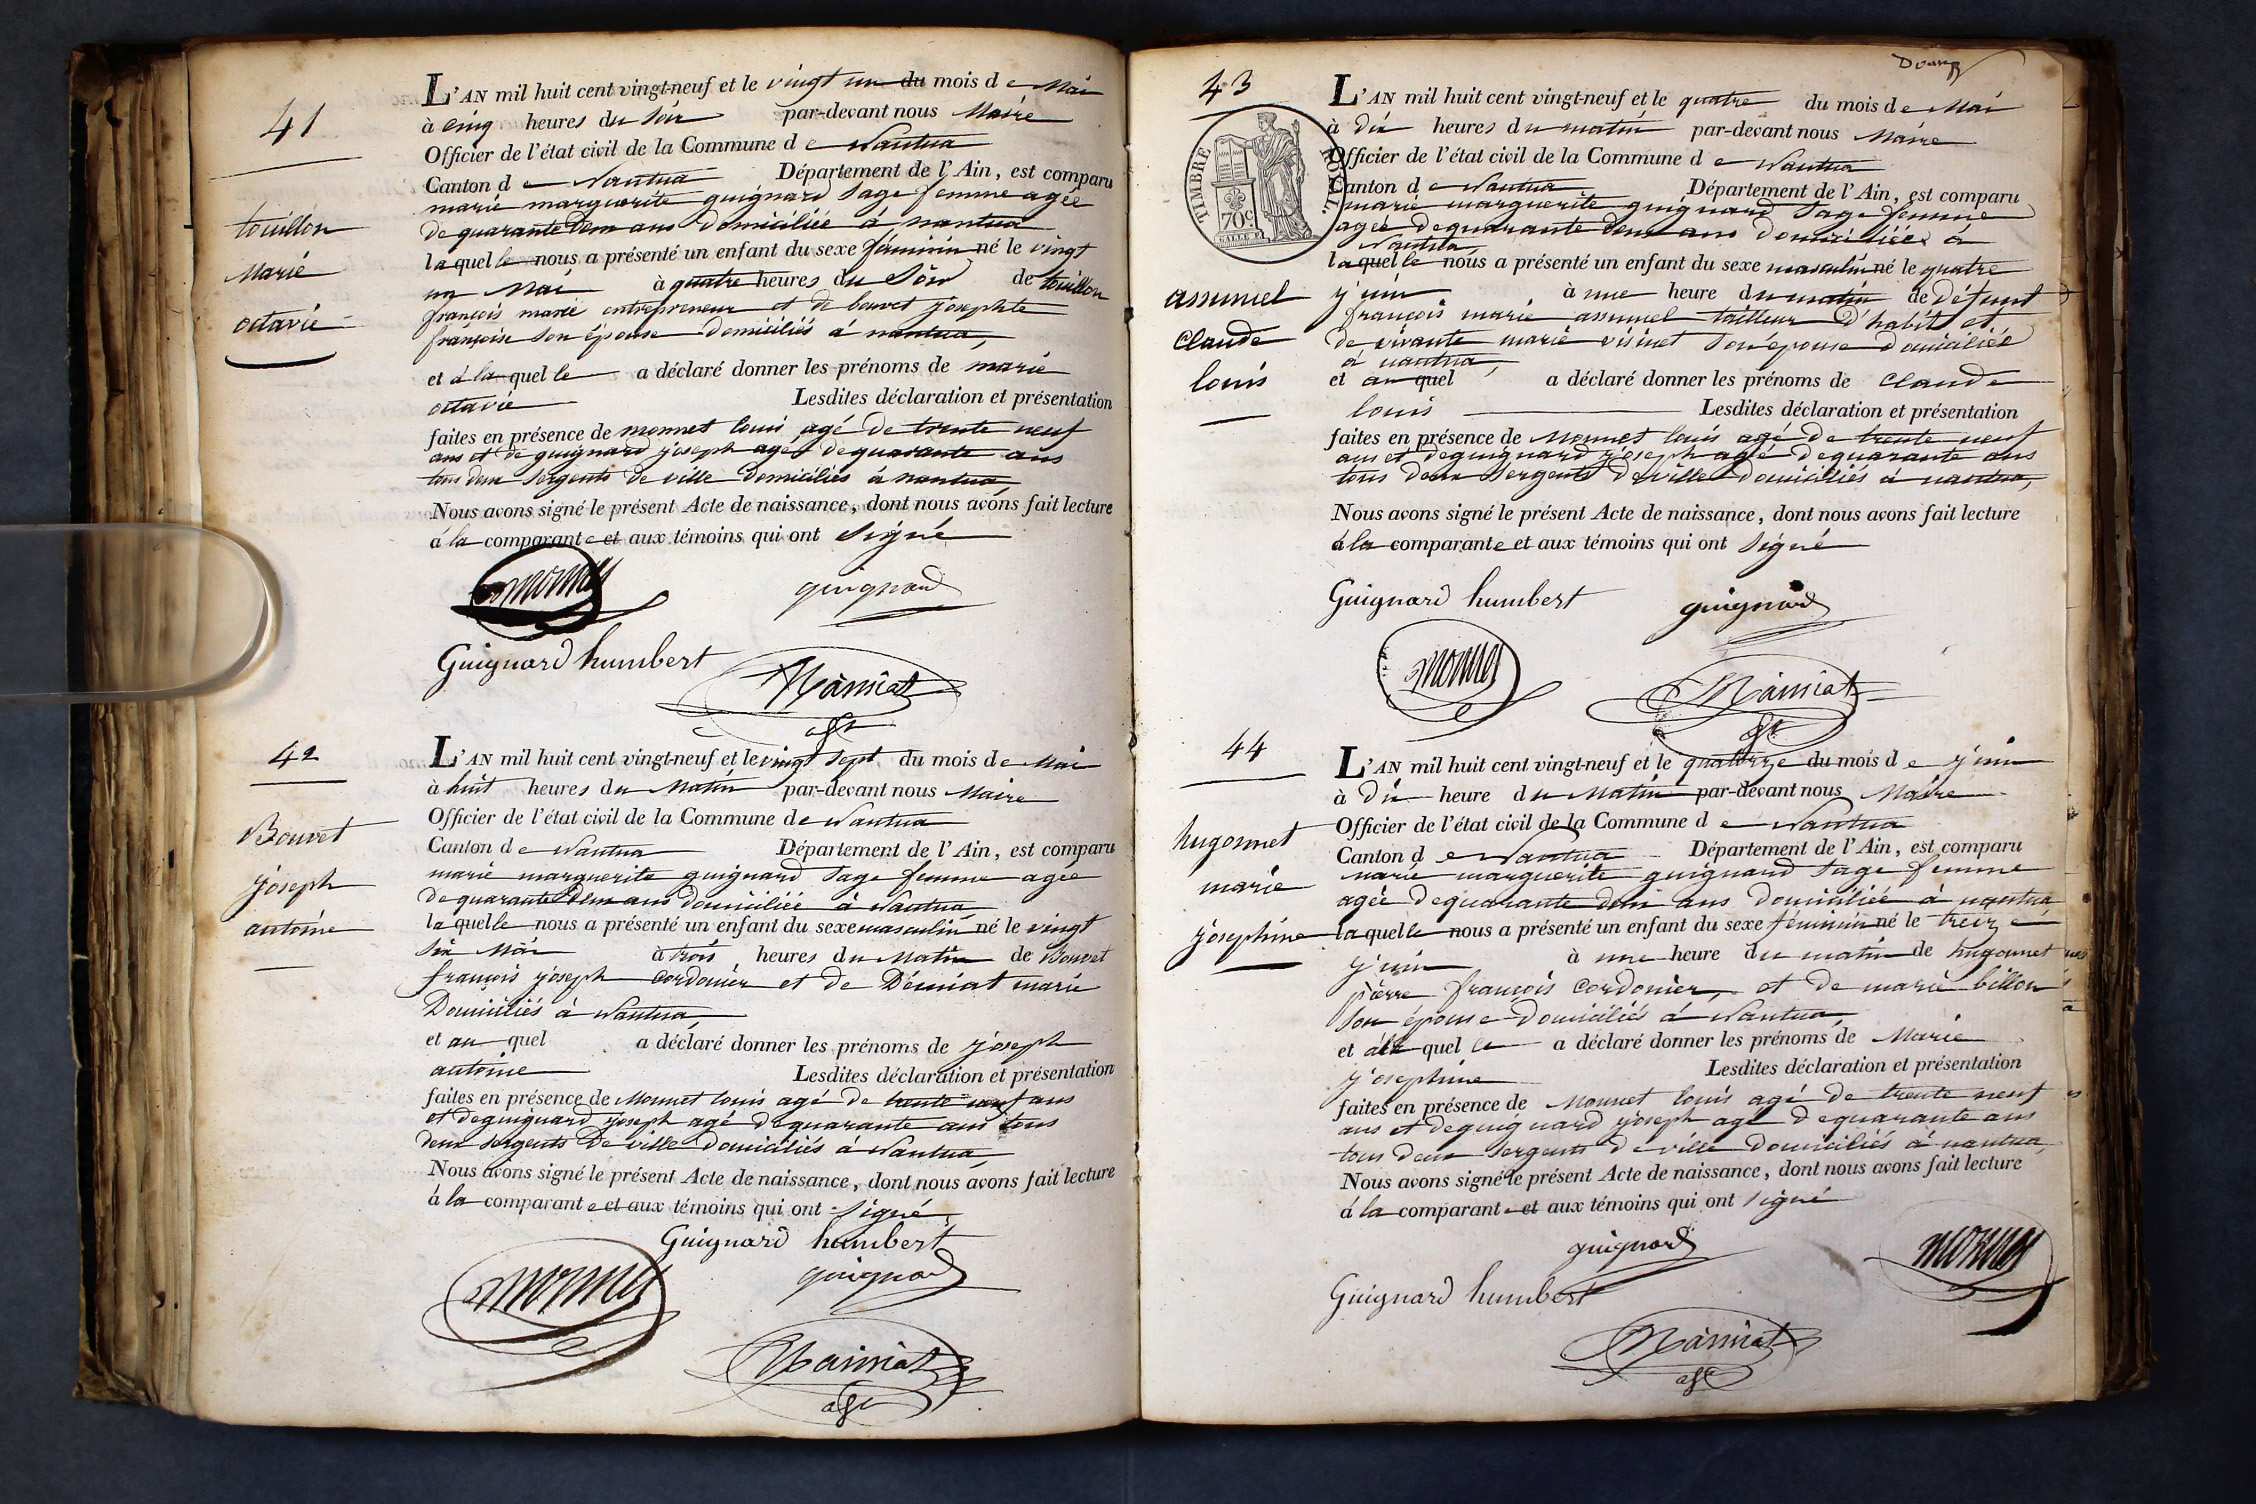 41
touillon
marie
octavie
L'AN mil huit cent vingt-neuf et le vingt un du mois de Mai
à cinq heures du soir par-devant nous Maire
Officier de l'état civil de la Commune de Nantua
Canton de Nantua Département de l'Ain, est comparu
marie marguerite guignard sage femme agée
de quarante deux ans domiciliée à nantua
laquelle nous a présenté un enfant du sexe féminin né le vingt
un Mai à quatre heures du Soir de touillon
françois marie entrepreneur et de bouvet josephte
françoise son épouse domiciliés à nantua,
et à laquelle a déclaré donner les prénoms de marie
octavie Lesdites déclaration et présentation
faites en présence de monnet louis agé de trente neuf
ans et de guignard joseph agé de quarante ans
tous deux sergents de ville domiciliés à nantua,
Nous avons signé le présent Acte de naissance, dont nous avons fait lecture
à la comparante et aux témoins qui ont signé
monnet
guignard
Guignard humbert
42
Bouvet
joseph
antoine
L'AN mil huit cent vingt-neuf et le vingt sept du mois de Mai
à huit heures du Matin par-devant nous Maire
Officier de l'état civil de la Commune de Nantua
Canton de Nantua Département de l'Ain, est comparu
marie marguerite guignard sage femme agée
de quarante deux ans domiciliée à Nantua
laquelle nous a présenté un enfant du sexe masculin né le vingt
six Mai à trois heures du Matin de Bouvet
françois joseph cordonier et de Démiat marie
Domiciliés à Nantua,
et au quel a déclaré donner les prénoms de joseph
antoine Lesdites déclaration et présentation
faites en présence de Monnet louis agé de trente neuf ans
et de guignard joseph agé de quarante ans tous
deux sergents de ville domiciliés à Nantua,
Nous avons signé le présent Acte de naissance, dont nous avons fait lecture
à la comparante et aux témoins qui ont signé,
Guignard humbert
monnet
guignard
43
TIMBRE ROYAL.
70c.
assumel
Claude
louis
L'AN mil huit cent vingt-neuf et le quatre du mois de Mai
à dix heures du matin par-devant nous Maire
Officier de l'état civil de la Commune de Nantua
Canton de Nantua Département de l'Ain, est comparu
marie marguerite guignard sage femme
agée de quarante deux ans domiciliée à
Nantua,
laquelle nous a présenté un enfant du sexe masculin né le quatre
juin à une heure du matin de défunt
françois marie assumel tailleur d'habit et
de vivante marie visinet son épouse domiciliée
à nantua,
et au quel a déclaré donner les prénoms de Claude
louis Lesdites déclaration et présentation
faites en présence de Monnet louis agé de trente neuf
ans et de guignard joseph agé de quarante ans
tous deux sergents de ville domiciliés à nantua,
Nous avons signé le présent Acte de naissance, dont nous avons fait lecture
à la comparante et aux témoins qui ont signé
Guignard humbert
guignard
monnet
44
hugonnet
marie
josephine
L'AN mil huit cent vingt-neuf et le quatorze du mois de juin
à dix heure du Matin par-devant nous Maire
Officier de l'état civil de la Commune de Nantua
Canton de Nantua Département de l'Ain, est comparu
marie marguerite guignard sage femme
agée de quarante deux ans domiciliée à nantua
laquelle nous a présenté un enfant du sexe féminin né le treize
juin à une heure du matin de hugonnet
pierre françois cordonier, et de marie billon
son épouse domiciliés à Nantua,
et à la quelle a déclaré donner les prénoms de Marie
josephine Lesdites déclaration et présentation
faites en présence de Monnet louis agé de trente neuf
ans et de guignard joseph agé de quarante ans
tous deux sergents de ville domiciliés à nantua,
Nous avons signé le présent Acte de naissance, dont nous avons fait lecture
à la comparante et aux témoins qui ont signé
guignard
monnet
Guignard humbert